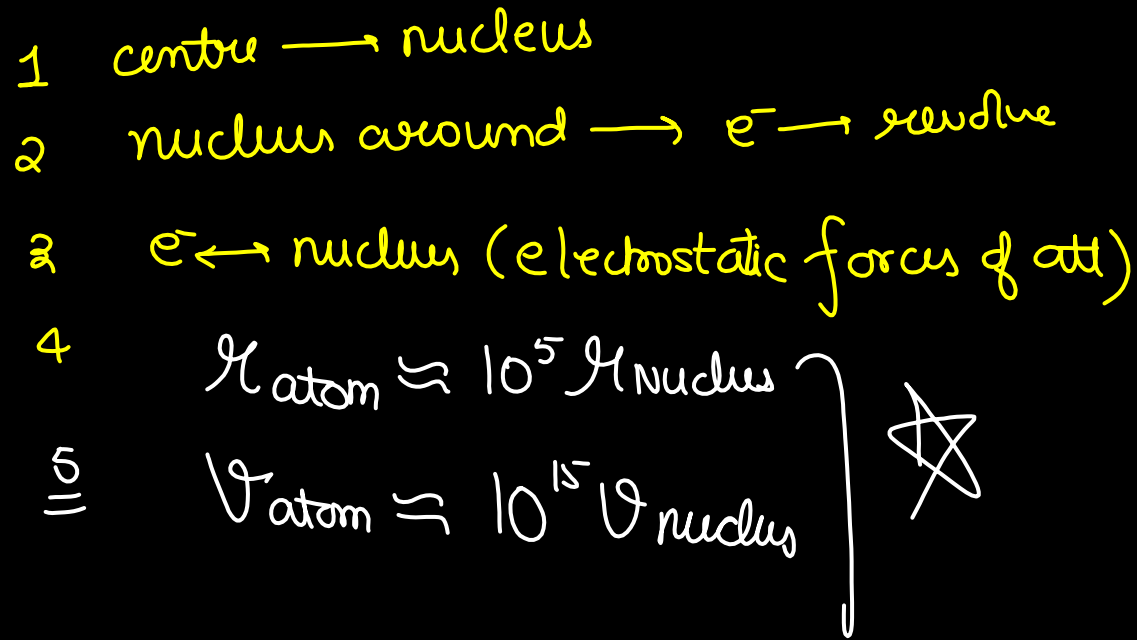 1 centre → nucleus
2 nucleus around → e⁻ → revolve
3 e⁻ ↔ nucleus (electrostatic forces of att)
4 r_atom ≈ 10⁵ r_nucleus
5 v_atom ≈ 10¹⁵ v_nucleus